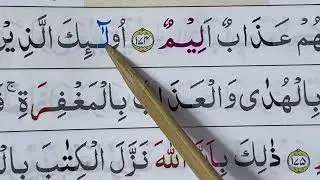 هُمْ عَذَابٌ اَلِیْمٌ ﴿۱۷۴﴾ اُولٰٓئِكَ الَّذِیْنَ
بِالْهُدٰی وَالْعَذَابَ بِالْمَغْفِرَةِ ۚ فَ
ذٰلِكَ بِاَنَّ اللّٰهَ نَزَّلَ الْكِتٰبَ بِالْ
﴿۱۷۵﴾